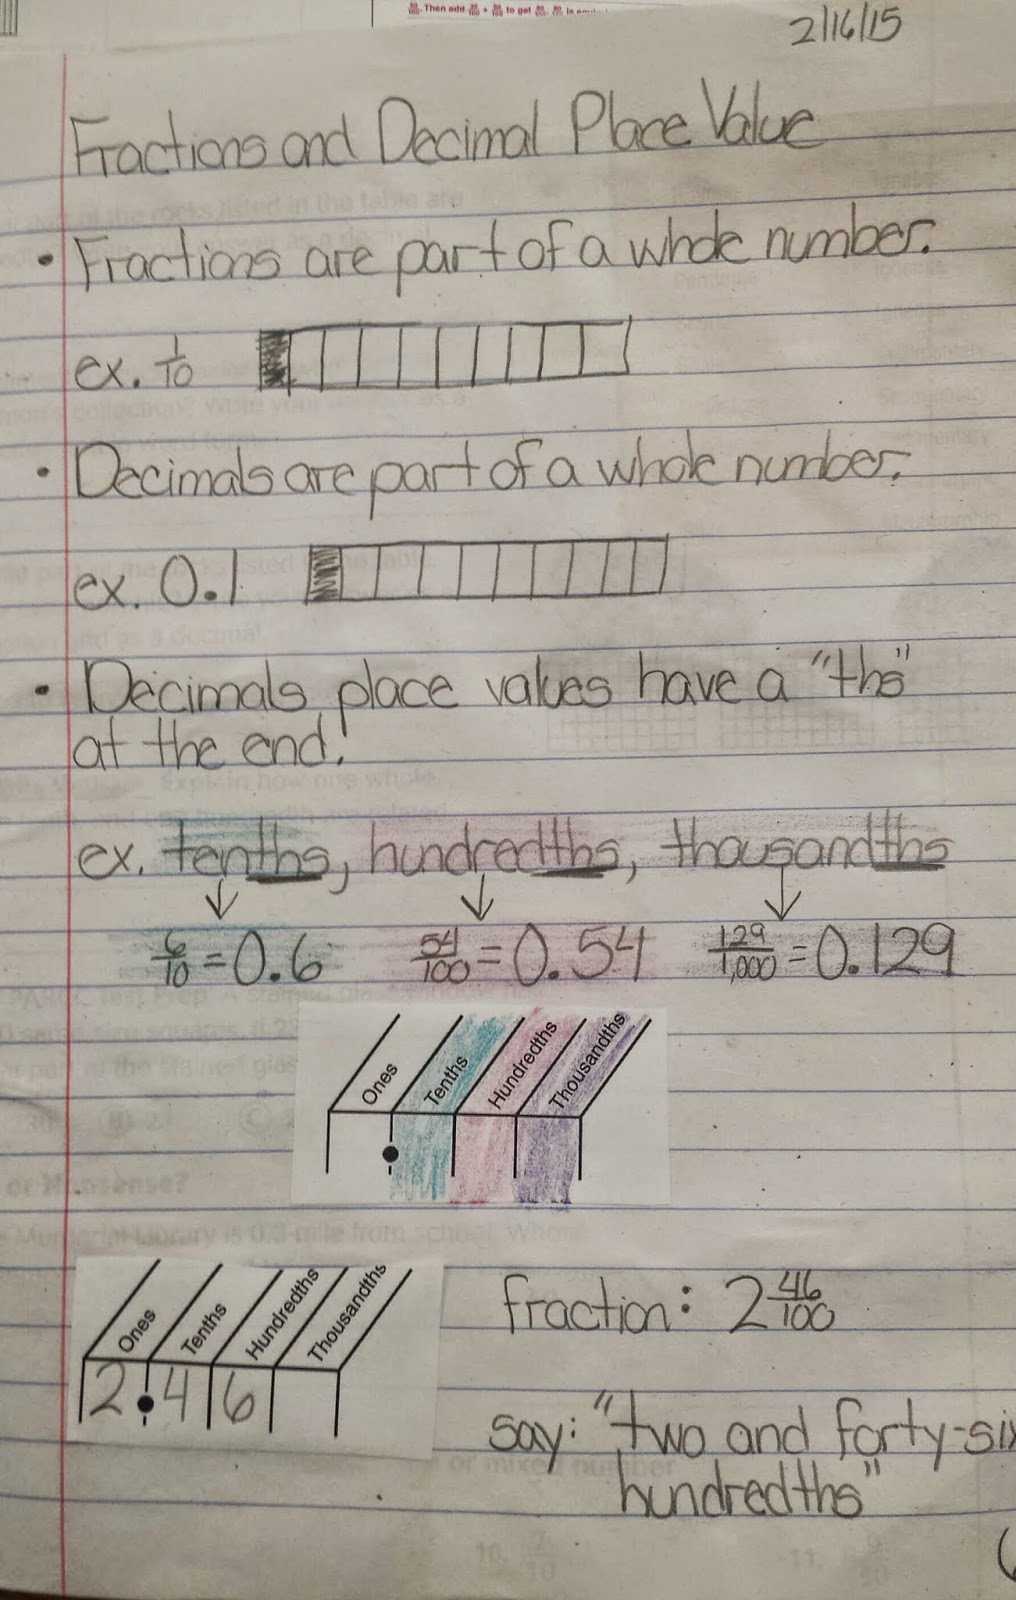 Then add
to get
2/16/15
Fractions and Decimal Place Value
• Fractions are part of a whole number.
ex. 1/10
• Decimals are part of a whole number.
ex. 0.1
• Decimals place values have a "ths"
at the end!
ex. tenths, hundredths, thousandths
6/10 = 0.6 54/100 = 0.54 129/1,000 = 0.129
Ones Tenths Hundredths Thousandths
Ones Tenths Hundredths Thousandths
2.46
fraction: 2 46/100
say: "two and forty-six
hundredths"